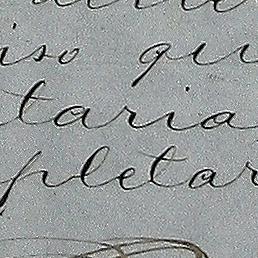 iso qu
taria
pletar